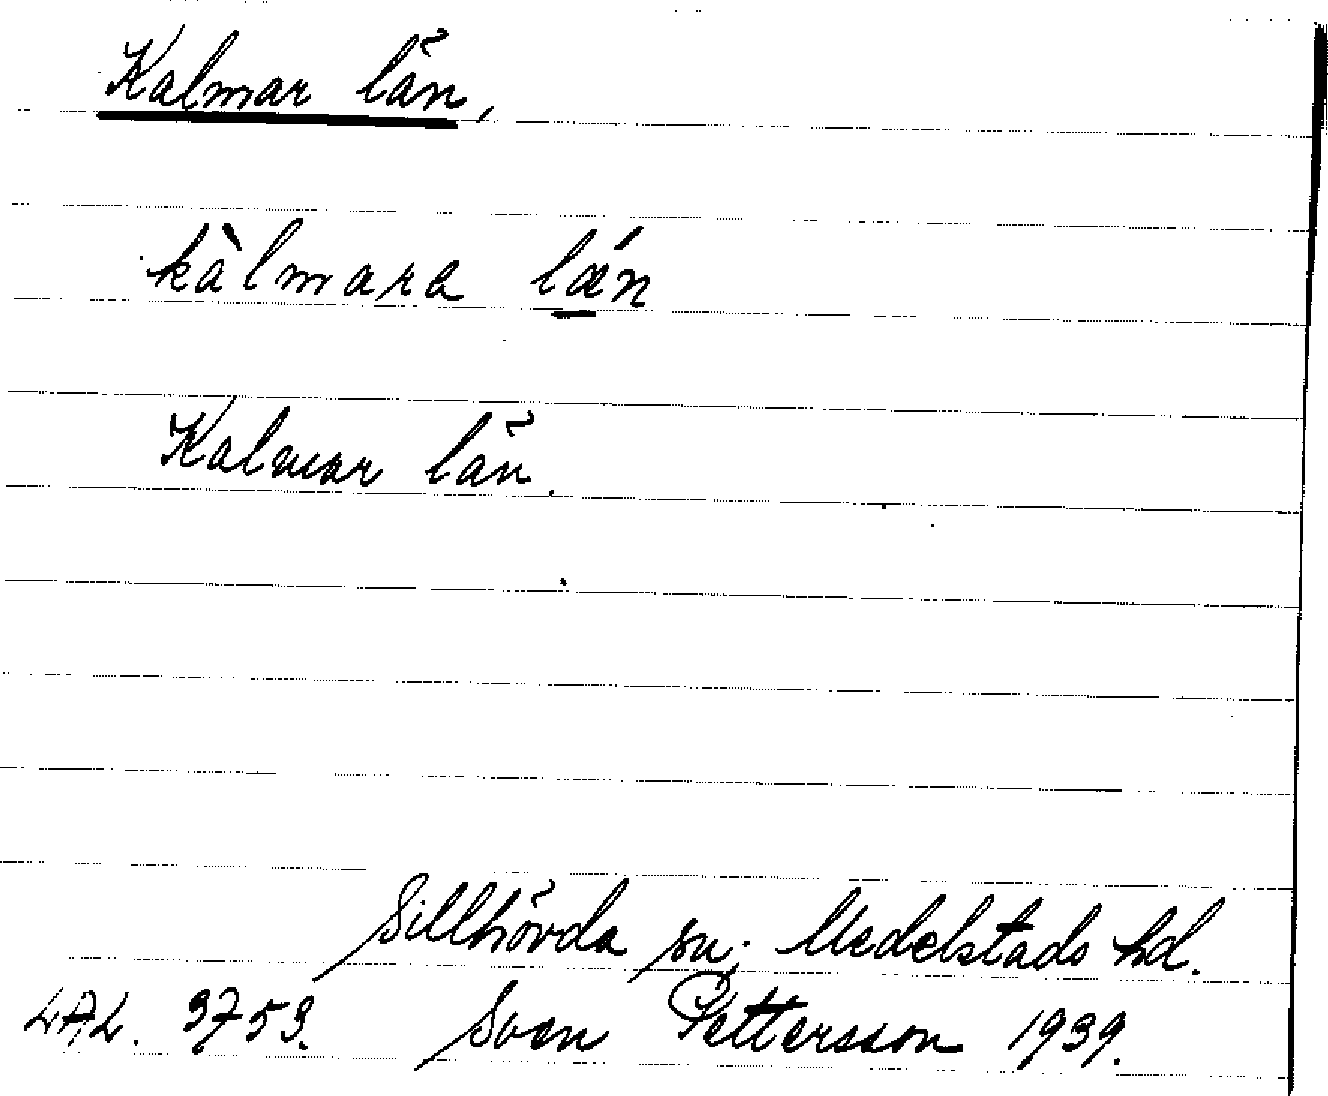 Kalmar län,
kàlmara lǽn
Kalmar län.
Sillhövda sn; Medelstads hd.
LAL. 3753. Sven Pettersson 1939.